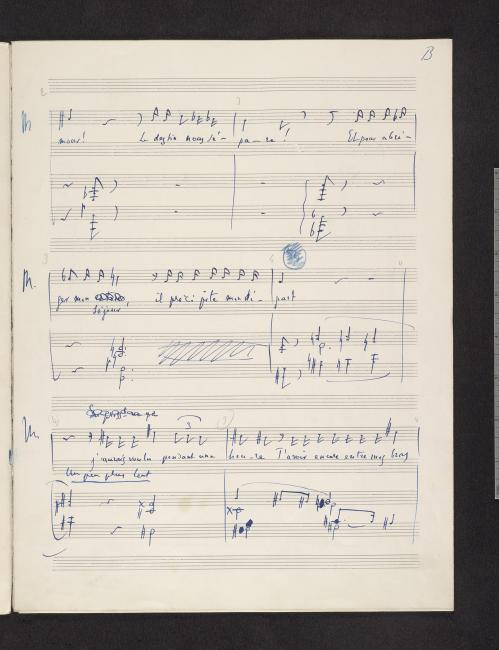 B
M.
mour! Le destin nous sé-pa-re! Et pour abré-
M.
ger mon
séjour, il précipite mon dé-part
M.
j'aurais voulu pendant une heu-re T'avoir encore entre mes bras
Un peu plus lent
3